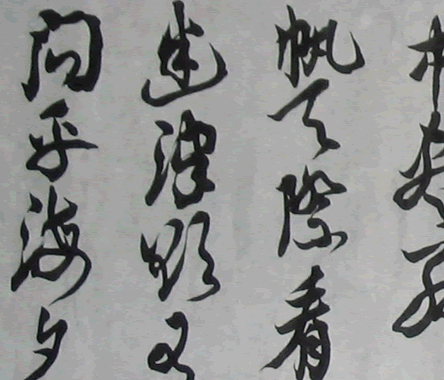 尽孤
帆天際看
迷津欲有
問平海夕